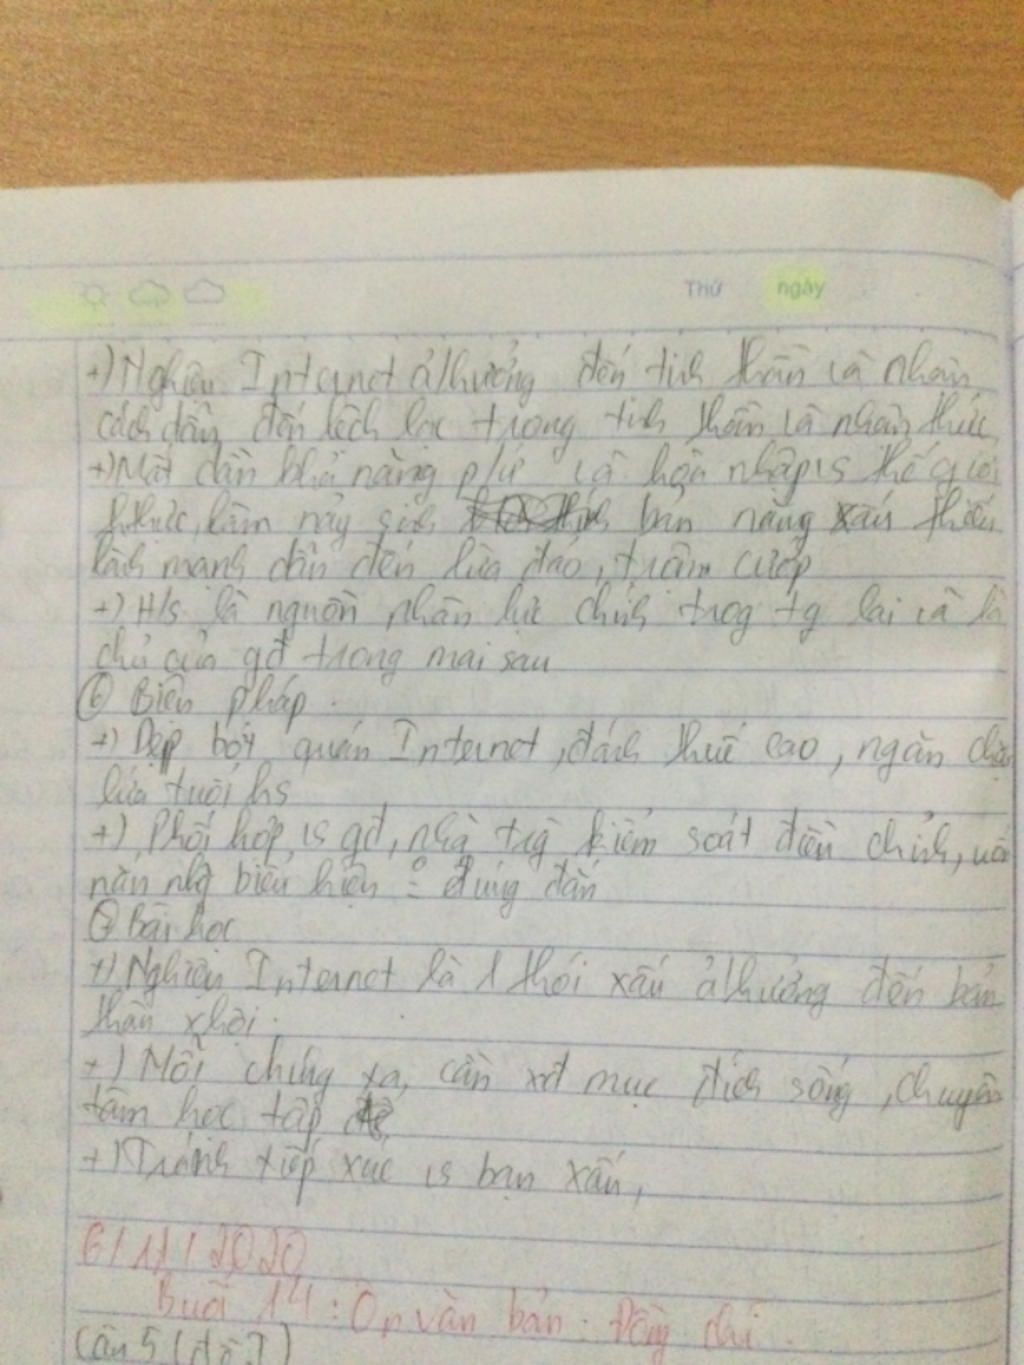 Thứ ngày
+) Nghiện Internet ả/hưởng đến tinh thần và nhân
cách dẫn đến lệch lạc trong tinh thần và nhận thức
+) Mất dần khả năng p/ứ và hòa nhập vs thế giới
thực, làm nảy sinh bản năng xấu thiếu
lành mạnh dẫn đến lừa đảo, trộm cướp
+) H/s là nguồn nhân lực chính trog tg lai và là
chủ của gđ trong mai sau
⑥ Biện pháp
+) Dẹp bớt quán Internet, đánh thuế cao, ngăn chặn
lứa tuổi hs
+) Phối hợp vs gđ, nhà trg kiểm soát điều chỉnh, uốn
nắn nhg biểu hiện đúng đắn
⑦ Bài học
+) Nghiện Internet là 1 thói xấu ả/hưởng đến bản
thân xhội.
+) Mỗi chúng ta, cần xđ mục đích sống, chuyên
tâm học tập
+) Tránh tiếp xúc vs bạn xấu,
6/11/2020
Buổi 14: Ôn văn bản: Đồng chí.
Câu 5 (đề 7)